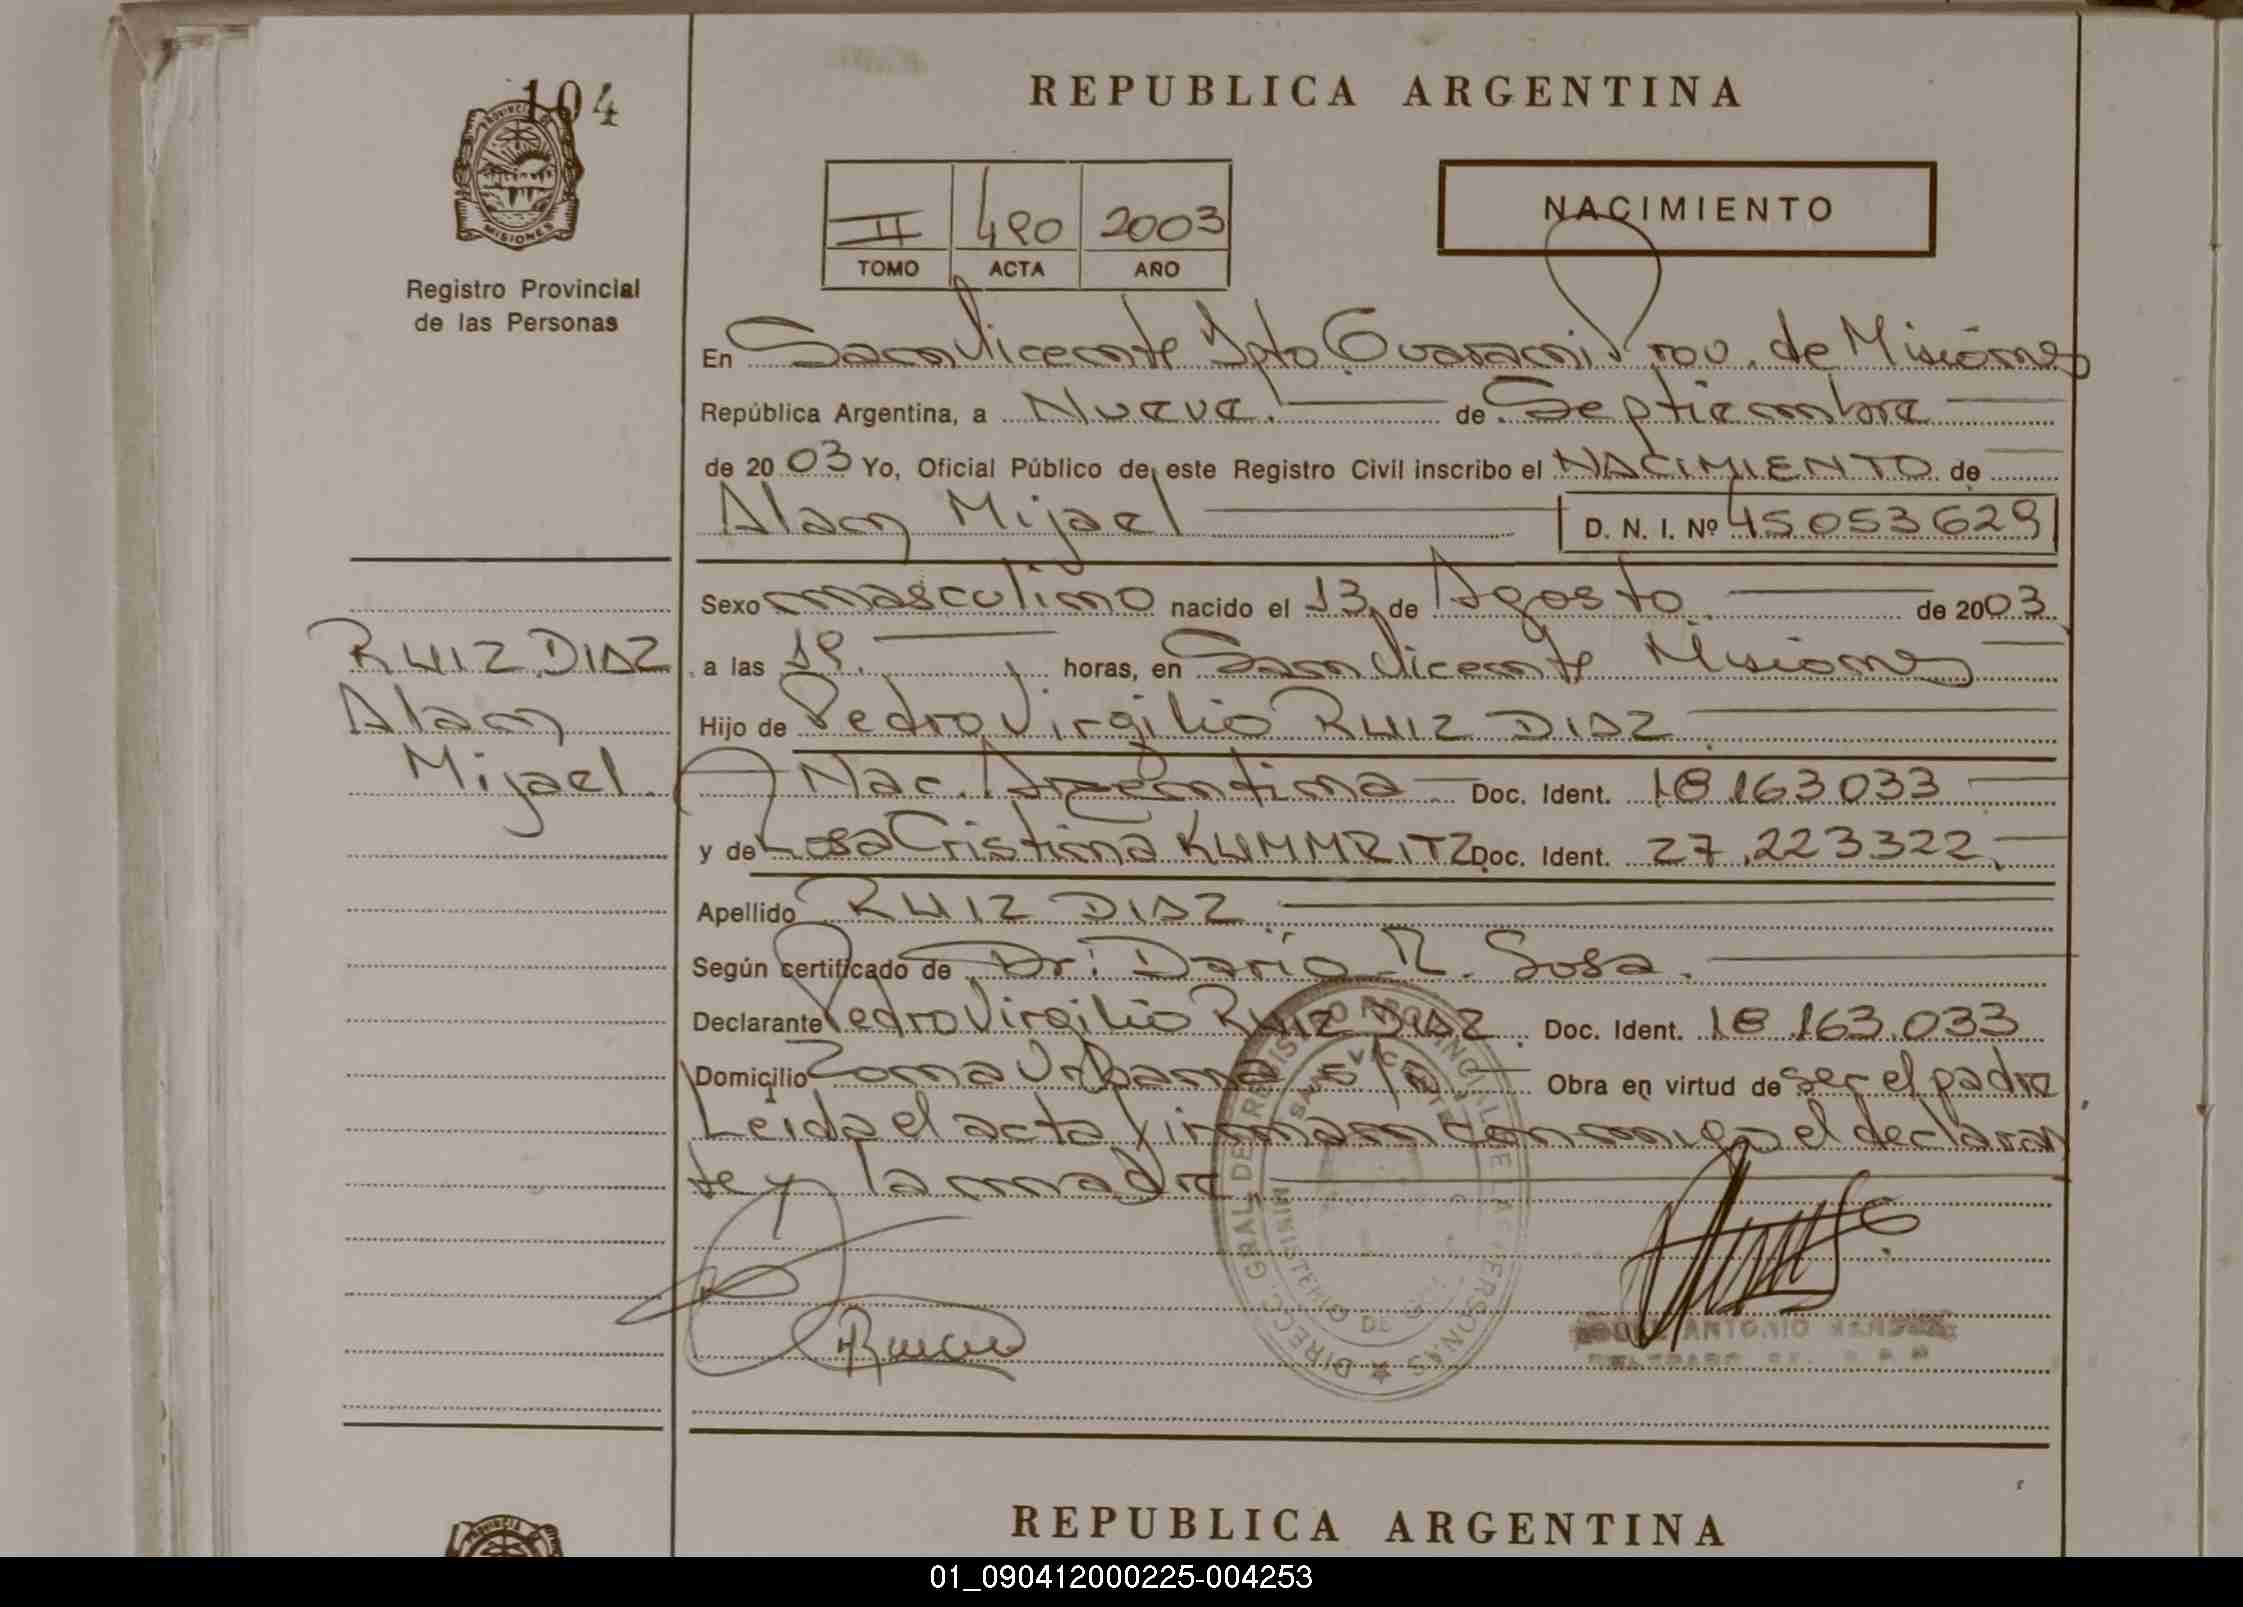 104
PROVINCIA DE
MISIONES
Registro Provincial
de las Personas
REPUBLICA ARGENTINA
II 490 2003
TOMO ACTA AÑO
NACIMIENTO
En San Vicente Dpto. Guarani Prov. de Misiones
República Argentina, a Nueve. de Septiembre
de 20 03 Yo, Oficial Público de este Registro Civil inscribo el NACIMIENTO de
Alan Mijael D. N. I. Nº 45053629
Sexo masculino nacido el 13 de Agosto de 2003
RUIZ DIAZ
Alan
Mijael
a las 19. horas, en San Vicente Misiones
Hijo de Pedro Virgilio RUIZ DIAZ
Nac. Argentina Doc. Ident. 18.163.033
y de Rosa Cristina KUMMRITZ Doc. Ident. 27.223322
Apellido RUIZ DIAZ
Según certificado de Dr. Darío R. Sosa.
Declarante Pedro Virgilio RUIZ DIAZ Doc. Ident. 18.163.033
Domicilio Zona Urbana s/n Obra en virtud de ser el padre
Leida el acta firman conmigo el declaran
te y la madre
DIRECC. GRAL. DE REGISTRO PROVINCIAL DE LAS PERSONAS
SAN VICENTE
MINISTERIO DE
ANTONIO
REPUBLICA ARGENTINA
PROVINCIA
01_090412000225-004253